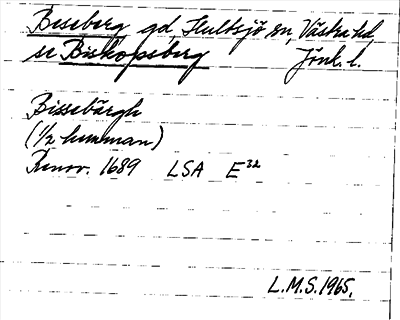 Besseberg gd, Hultsjö sn, Västra hd
se Biskopsberg Jönk. l.
Bissebärgh
(1/2 hemman)
Renov. 1689 LSA E32
L.M.S. 1965.